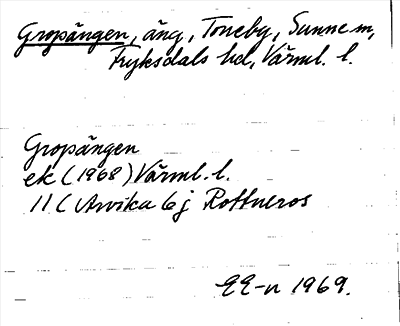 Gropängen, äng, Toneby, Sunne m,
Fryksdals hd, Värml. l.
Gropängen
ek (1968) Värml. l.
11 C Arvika 6 j Rottneros
EE-n 1969.